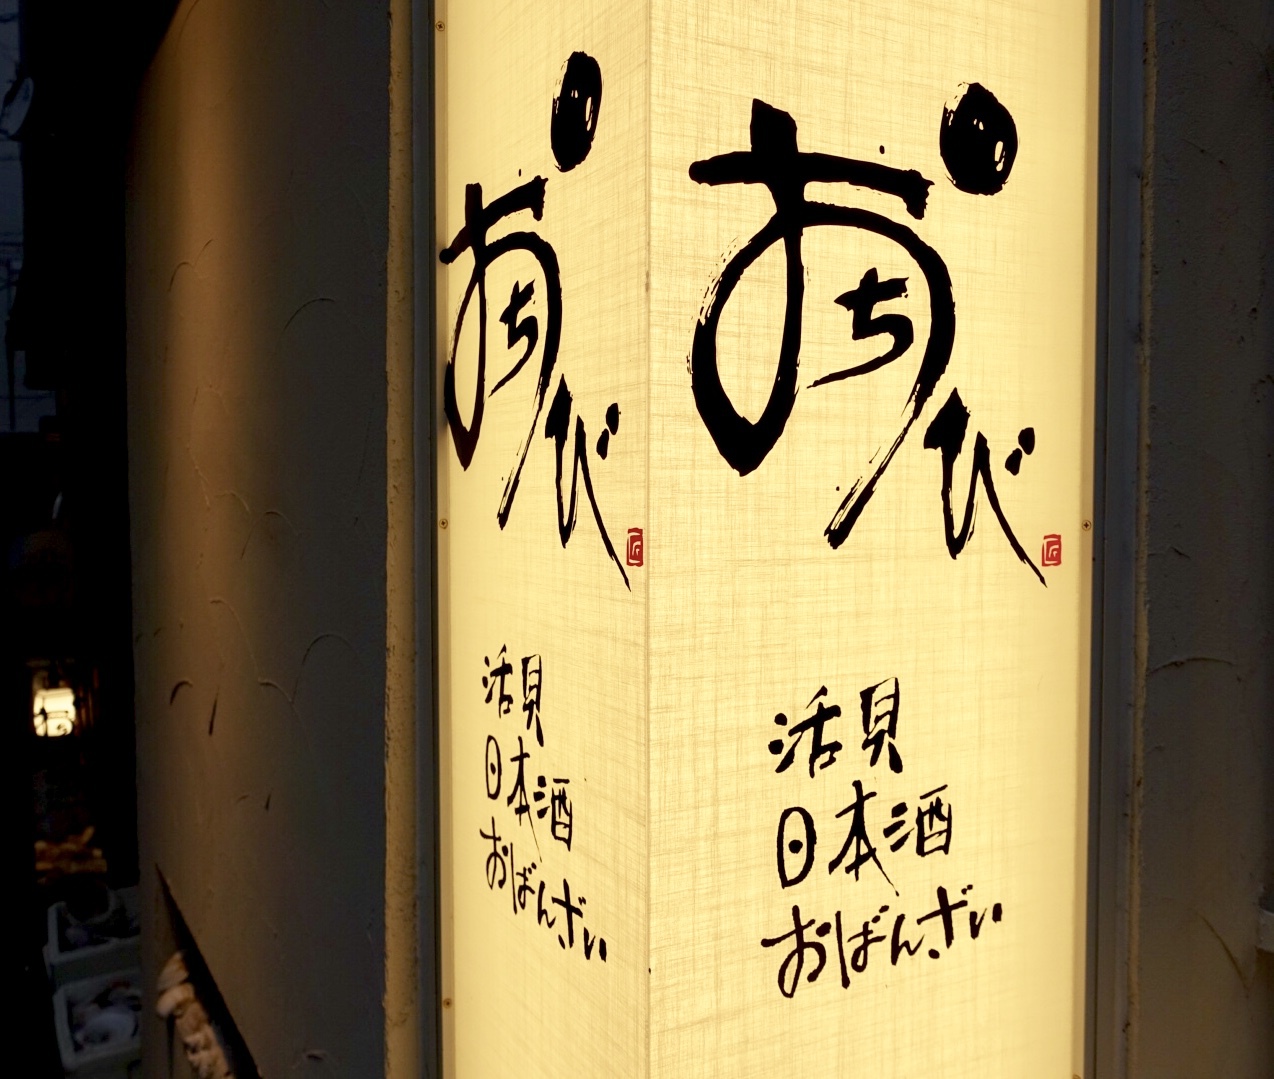 おちび
匠
活貝
日本酒
おばんざい
おちび
匠
活貝
日本酒
おばんざい